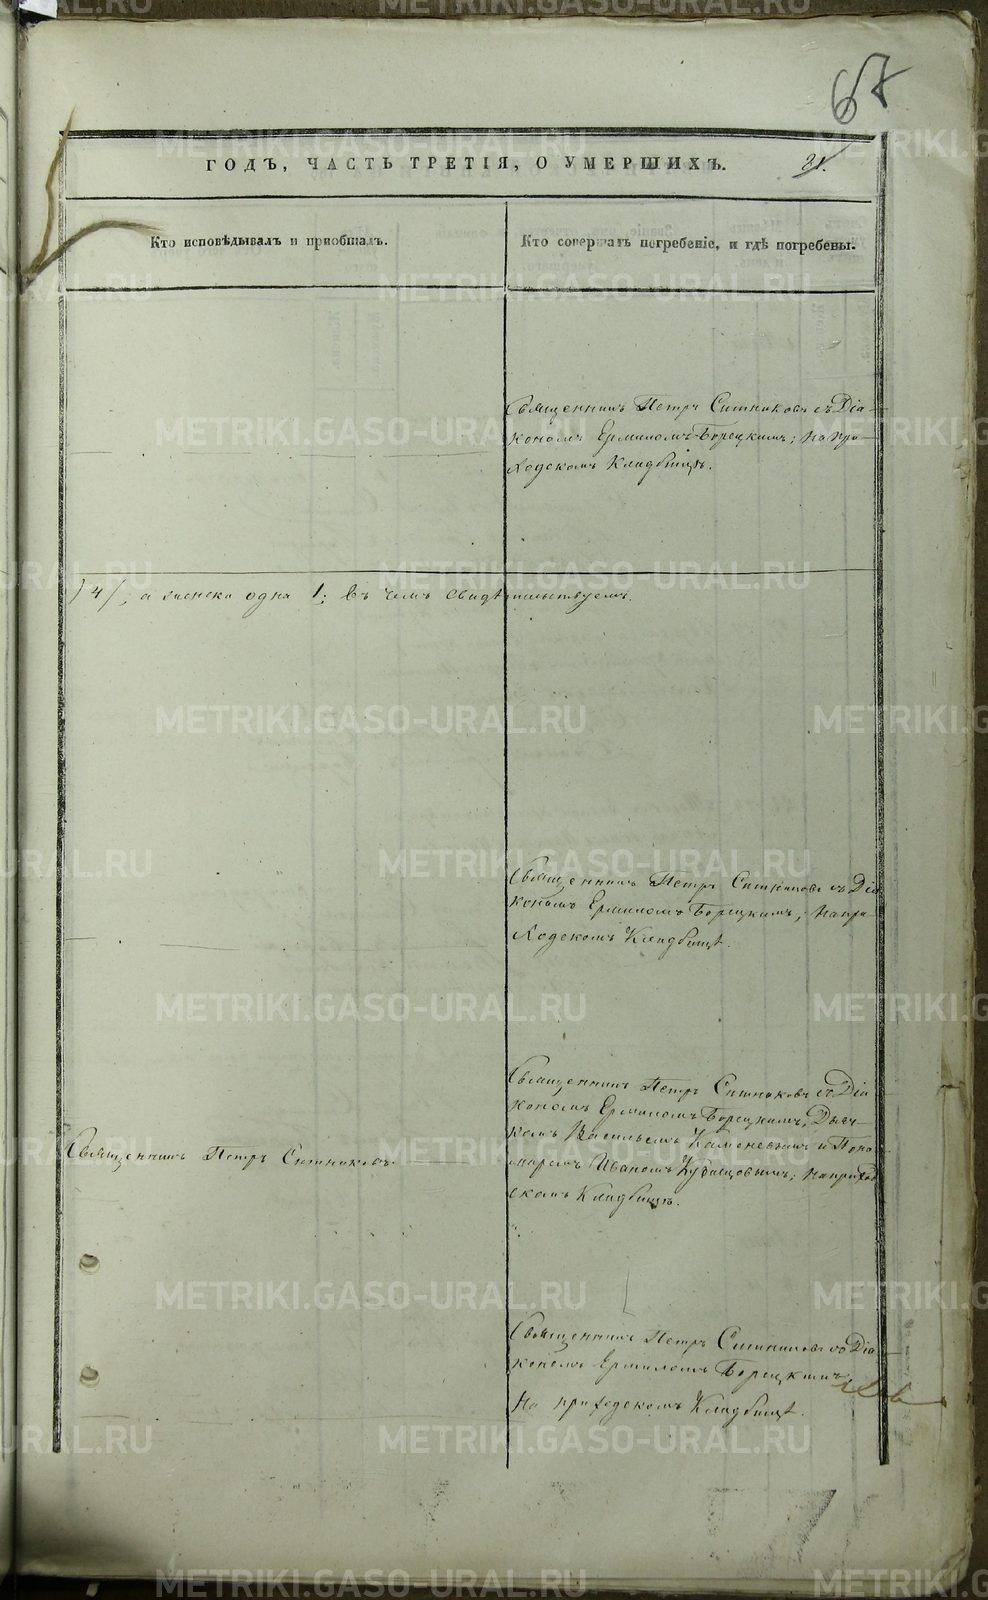 67
ГОДЪ, ЧАСТЬ ТРЕТІЯ, О УМЕРШИХЪ.
21.
Кто исповѣдывалъ и пріобщалъ.
Кто совершалъ погребеніе, и гдѣ погребены.
Священникъ Петръ Ситниковъ съ Діа-
кономъ Ермиломъ Борецкимъ; на при-
ходскомъ кладбищѣ.
/4/, а женска одна 1; въ чемъ свидѣтельствуемъ.
Священникъ Петръ Ситниковъ съ Діа
кономъ Ермиломъ Борецкимъ, на при-
ходскомъ кладбищѣ.
Священникъ Петръ Ситниковъ.
Священникъ Петръ Ситниковъ съ Діа
кономъ Ермиломъ Борецкимъ, Дьяч-
комъ Васильемъ Каменевымъ и Поно-
маремъ Иваномъ Кузнецовымъ; на приход
скомъ кладбищѣ.
Священникъ Петръ Ситниковъ со Діа
кономъ Ермиломъ Борецкимъ
на приходскомъ кладбищѣ.
METRIKI.GASO-URAL.RU